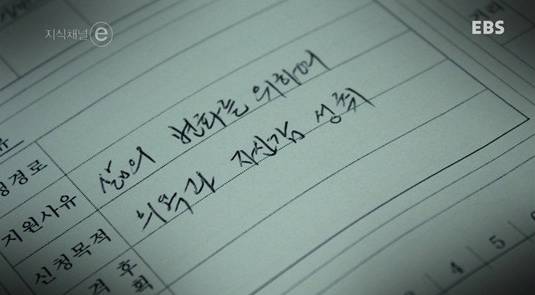 지식채널 e
EBS
유
청경로
지원사유 삶의 변화를 위하여
신청목적 의욕과 자신감 성취
격 후
획
4 5 6